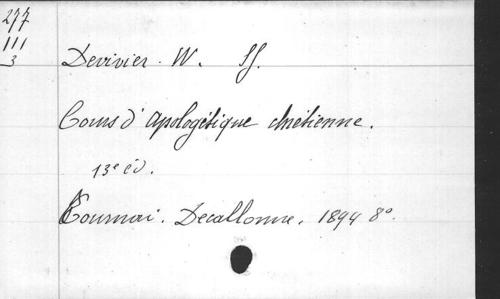 277
111
3
Devivier. W. SJ.
Cours d'Apologétique chrétienne.
13e éd.
Tournai. Decallonne. 1894 8o.